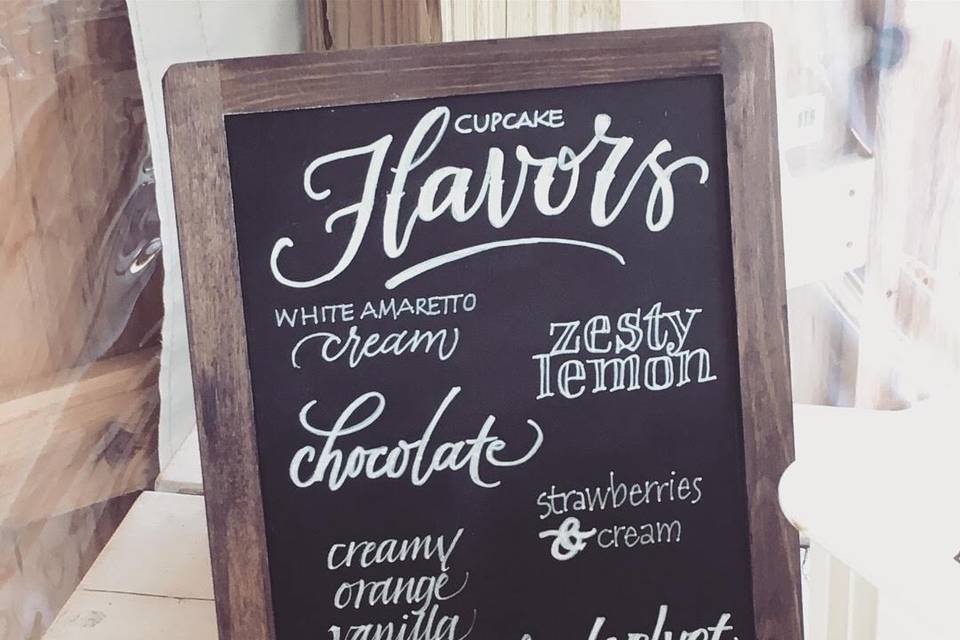 CUPCAKE
Flavors
WHITE AMARETTO
cream
zesty
lemon
chocolate
strawberries
& cream
creamy
orange
vanilla